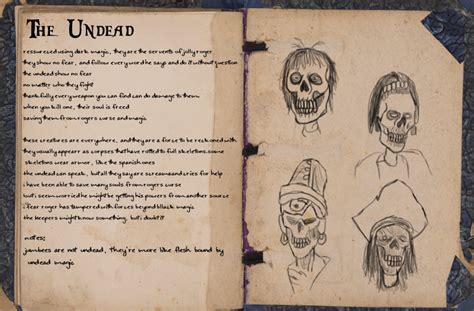 The Undead
ressureced using dark magic, they are the servents of jolly roger
they show no fear, and follow every word he says and do it without question
the undead show no fear
no matter who they fight
thankfully every weapon you can find can do damage to them
when you kill one, their soul is freed
saving them from rogers curse and magic
these creatures are everywhere, and they are a force to be reckoned with
they usually appear as corpses that have rotted to full skeletons some
skeletons wear armor, like the spanish ones
the undead can speak, but all they say are screams and cries for help
i have been able to save many souls from rogers curse
but i seem worried he might be getting his powers from another source
i fear roger has tampered with forces beyond black magic
the keepers might know something, but i doubt it
notes:
jumbees are not undead, they're more like flesh bound by
undead magic